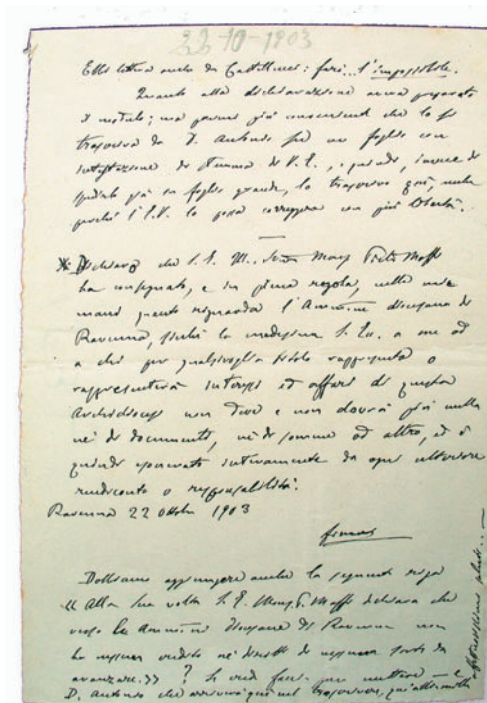 22-10-1903
Ebbi lettera anche da Castellucci: farò... l'impossibile.
Quanto alla dichiarazione aveva preparato
il modulo; ma parmi più conveniente che lo si
trascriva da D. Antonio su un foglio con
intestazione di stemma di V. E., quindi, invece di
spedirlo già in foglio grande, lo trascrivo qui, anche
perchè l'E.V. lo possa correggere con più libertà.
Dichiaro che S. E. Ill. Mons. Pietro Maffi
ha consegnato, e in piena regola, nelle mie
mani quanto riguarda l'Amm.ne diocesana di
Ravenna, sicchè la medesima S. Ecc. a me od
a chi per qualsivoglia titolo rappresenta o
rappresenterà interessi ed affari di questa
Archidiocesi non deve e non dovrà più nulla
nè di documenti, nè di somme od altro, ed è
quindi esonerato interamente da ogni ulteriore
rendiconto o responsabilità.
Ravenna 22 Ottobre 1903
Dobbiamo aggiungere anche la seguente riga
« Alla sua volta S. E. Mons. P. Maffi dichiara che
verso la Amm.ne diocesana di Ravenna non
ha nessun credito nè diritti di nessuna sorta da
avanzare. » ? Se crede faccia pure mettere — e
D. Antonio che arriverà qui nel trascrivere,